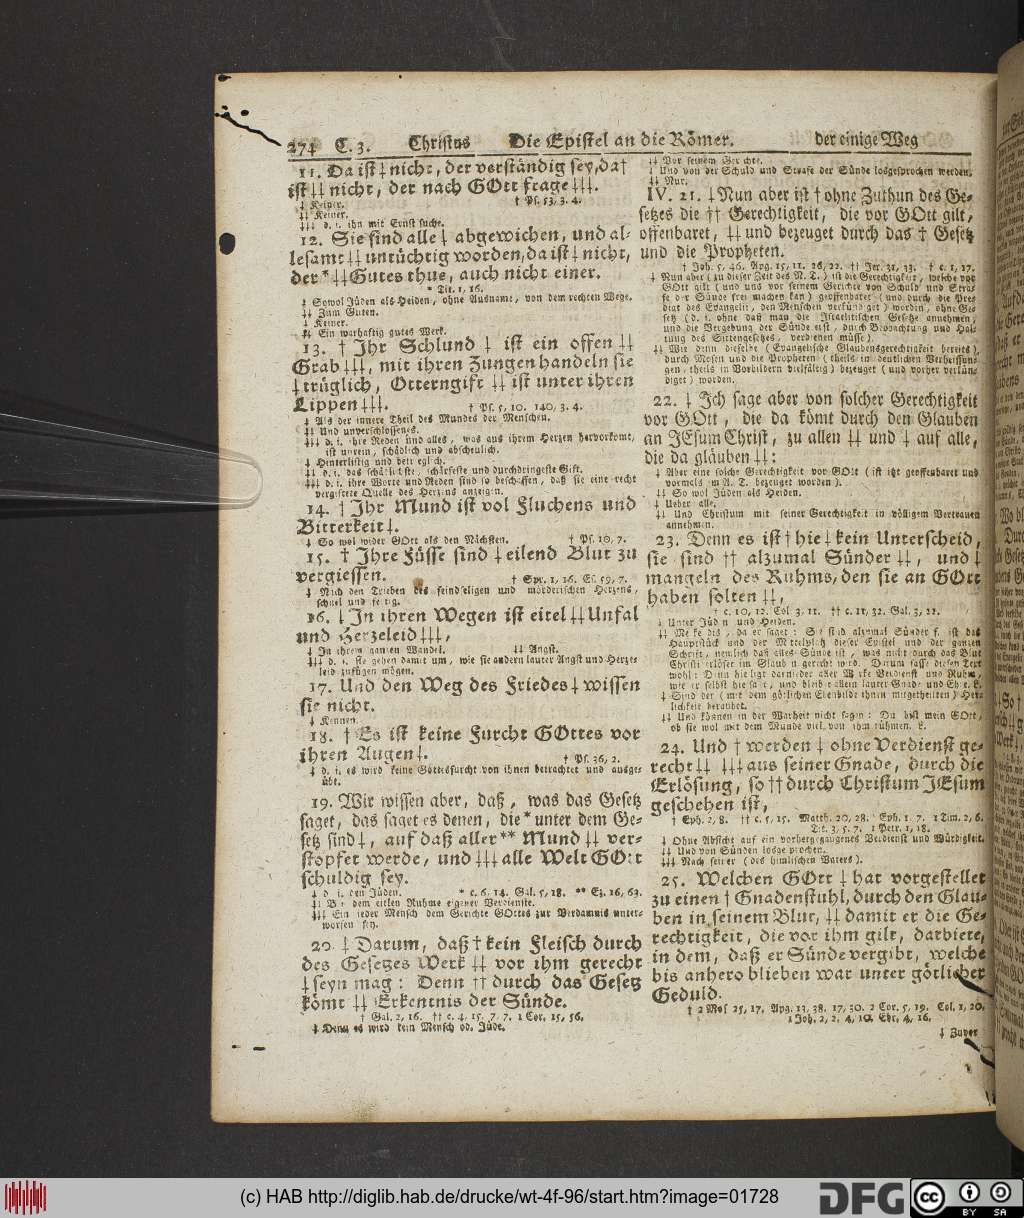 274 C. 3. Christus Die Epistel an die Römer. der einige Weg
11. Da ist ‡ nicht, der verständig sey, da†
ist ‡‡ nicht, der nach GOtt frage ‡‡‡.
‡ Keiner. † Ps. 53, 3. 4.
‡‡ Keiner.
‡‡‡ d. i. ihn mit Ernst suche.
12. Sie sind alle ‡ abgewichen, und al-
lesamt ‡‡ untüchtig worden, da ist ‡ nicht,
der * ‡‡ Gutes thue, auch nicht einer.
* Tit. 1, 16.
‡ Sowol Jüden als Heiden, ohne Ausnamt, von dem rechten Wege.
‡‡ Zum Guten.
‡ Keiner.
‡‡ Ein warhaftig gutes Werk.
13. † Ihr Schlund ‡ ist ein offen ‡‡
Grab ‡‡‡, mit ihren Zungen handeln sie
‡ trüglich, Otterngift ‡‡ ist unter ihren
Lippen ‡‡‡. † Ps. 5, 10. 140, 3. 4.
‡ Als der innere Theil des Mundes der Menschen.
‡‡ Und unverschlossenes.
‡‡‡ d. i. ihre Reden und alles, was aus ihrem Herzen hervorkomt,
ist unrein, schädlich und abscheulich.
‡ Hinterlistig und betrieglich.
‡‡ d. i. das schädlichste, schärfeste und durchdringeste Gift.
‡‡‡ d. i. ihre Worte und Reden sind so beschaffen, daß sie eine recht
vergiftete Quelle des Herzens anzeigen.
14. † Ihr Mund ist vol Fluchens und
Bitterkeit ‡.
‡ So wol wider GOtt als den Nächsten. † Ps. 10, 7.
15. † Ihre Füsse sind ‡ eilend Blut zu
vergiessen. † Spr. 1, 16. Es. 59, 7.
‡ Nach den Trieben des feindseligen und mörderischen Herzens,
schnel und fertig.
16. ‡ In ihren Wegen ist eitel ‡‡ Unfal
und Herzeleid ‡‡‡,
‡ In ihrem ganzen Wandel. ‡‡ Angst.
‡‡‡ d. i. sie gehen damit um, wie sie andern lauter Angst und Herze-
leid zufügen mögen.
17. Und den Weg des Friedes ‡ wissen
sie nicht.
‡ Kennen.
18. † Es ist keine Furcht GOttes vor
ihren Augen ‡. † Ps. 36, 2.
‡ d. i. es wird keine Gottesfurcht von ihnen betrachtet und ausge-
übt.
19. Wir wissen aber, daß, was das Gesetz
saget, das saget es denen, die * unter dem Ge-
setz sind ‡, auf daß aller ** Mund ‡‡ ver-
stopfet werde, und ‡‡‡ alle Welt GOtt
schuldig sey.
‡ d. i. den Jüden. * c. 6, 14. Gal. 5, 18. ** Ez. 16, 63.
‡‡ Vor dem eitlen Ruhme eigener Verdienste.
‡‡‡ Ein jeder Mensch dem Gerichte GOttes zur Verdamnis unter-
worfen sey.
20. ‡ Darum, daß † kein Fleisch durch
des Gesetzes Werk ‡‡ vor ihm gerecht
‡ seyn mag: Denn †† durch das Gesetz
kömt ‡‡ Erkentnis der Sünde.
† Gal. 2, 16. †† c. 4, 15. 7, 7. 1 Cor. 15, 56.
‡ Denn es wird kein Mensch od. Jüde.
‡‡ Vor seinem Gerichte.
‡ Und von der Schuld und Strafe der Sünde losgesprochen werden.
‡‡ Nur.
IV. 21. ‡ Nun aber ist † ohne Zuthun des Ge-
setzes die †† Gerechtigkeit, die vor GOtt gilt,
offenbaret, ‡‡ und bezeuget durch das † Gesetz
und die Propheten.
† Joh. 5, 46. Apg. 15, 11. 26, 22. †† Jer. 31, 33. † c. 1, 17.
‡ Nun aber (zu dieser Zeit des N. T.) ist die Gerechtigkeit, welche vor
GOtt gilt (und uns vor seinem Gerichte von Schuld und Stra-
fe der Sünde frei machen kan) geoffenbaret (und durch die Pre-
digt des Evangelii, den Menschen verkündiget) worden, ohne Ge-
setz (d. i. ohne daß man die Israelitischen Gesetze annehmen,
und die Vergebung der Sünde erst, durch Beobachtung und Hal-
tung des Sittengesetzes, verdienen müsse).
‡‡ Wie denn dieselbe (Evangelische Glaubensgerechtigkeit bereits),
durch Mosen und die Propheten (theils in deutlichen Verheissun-
gen, theils in Vorbildern vielfältig) bezeuget (und vorher verkün-
diget) worden.
22. ‡ Ich sage aber von solcher Gerechtigkeit
vor GOtt, die da kömt durch den Glauben
an JEsum Christ, zu allen ‡‡ und ‡ auf alle,
die da gläuben ‡‡:
‡ Aber eine solche Gerechtigkeit vor GOtt (ist itzt geoffenbaret und
vormals im A. T. bezeuget worden).
‡‡ So wol Jüden als Heiden.
‡ Ueber alle.
‡‡ Und Christum mit seiner Gerechtigkeit in völligem Vertrauen
annehmen.
23. Denn es ist † hie ‡ kein Unterscheid,
sie sind †† alzumal Sünder ‡‡, und ‡
mangeln des Ruhms, den sie an GOtt
haben solten ‡‡,
† c. 10, 12. Col. 3, 11. †† c. 11, 32. Gal. 3, 22.
‡ Unter Jüden und Heiden.
‡‡ Merke dis, da er saget: Sie sind alzumal Sünder ꝛc. ist das
Hauptstück und der Mittelplatz dieser Epistel und der ganzen
Schrift, nemlich daß alles Sünde ist, was nicht durch das Blut
Christi erlöset im Glauben gerecht wird. Darum fasse diesen Text
wohl: Denn hie ligt darnieder aller Werke Verdienst und Ruhm,
wie er selbst hie saget, und bleibet allein lauter Gnade und Ehre. L.
‡ Sind der (mit dem götlichen Ebenbilde ihnen mitgetheilten) Her-
lichkeit beraubet.
‡‡ Und können in der Warheit nicht sagen: Du bist mein GOtt,
ob sie wol mit dem Munde viel von ihm rühmen. L.
24. Und † werden ‡ ohne Verdienst ge-
recht ‡‡ ‡‡‡ aus seiner Gnade, durch die
Erlösung, so †† durch Christum JEsum
geschehen ist,
† Eph. 2, 8. †† c. 5, 15. Matth. 20, 28. Eph. 1, 7. 1 Tim. 2, 6.
Tit. 3, 5. 7. 1 Petr. 1, 18.
‡ Ohne Absicht auf ein vorhergegangenes Verdienst und Würdigkeit.
‡‡ Und von Sünden losgesprochen.
‡‡‡ Nach seiner (des himlischen Vaters).
25. Welchen GOtt ‡ hat vorgestellet
zu einem † Gnadenstuhl, durch den Glau-
ben in seinem Blut, ‡‡ damit er die Ge-
rechtigkeit, die vor ihm gilt, darbiete,
in dem, daß er Sünde vergibt, welche
bis anhero blieben war unter götlicher
Geduld.
† 2 Mos. 25, 17. Apg. 13, 38. 17, 30. 2 Cor. 5, 19. Col. 1, 20.
1 Joh. 2, 2. 4, 10. Ebr. 4, 16.
‡ Zuver
(c) HAB http://diglib.hab.de/drucke/wt-4f-96/start.htm?image=01728
DFG
cc BY SA